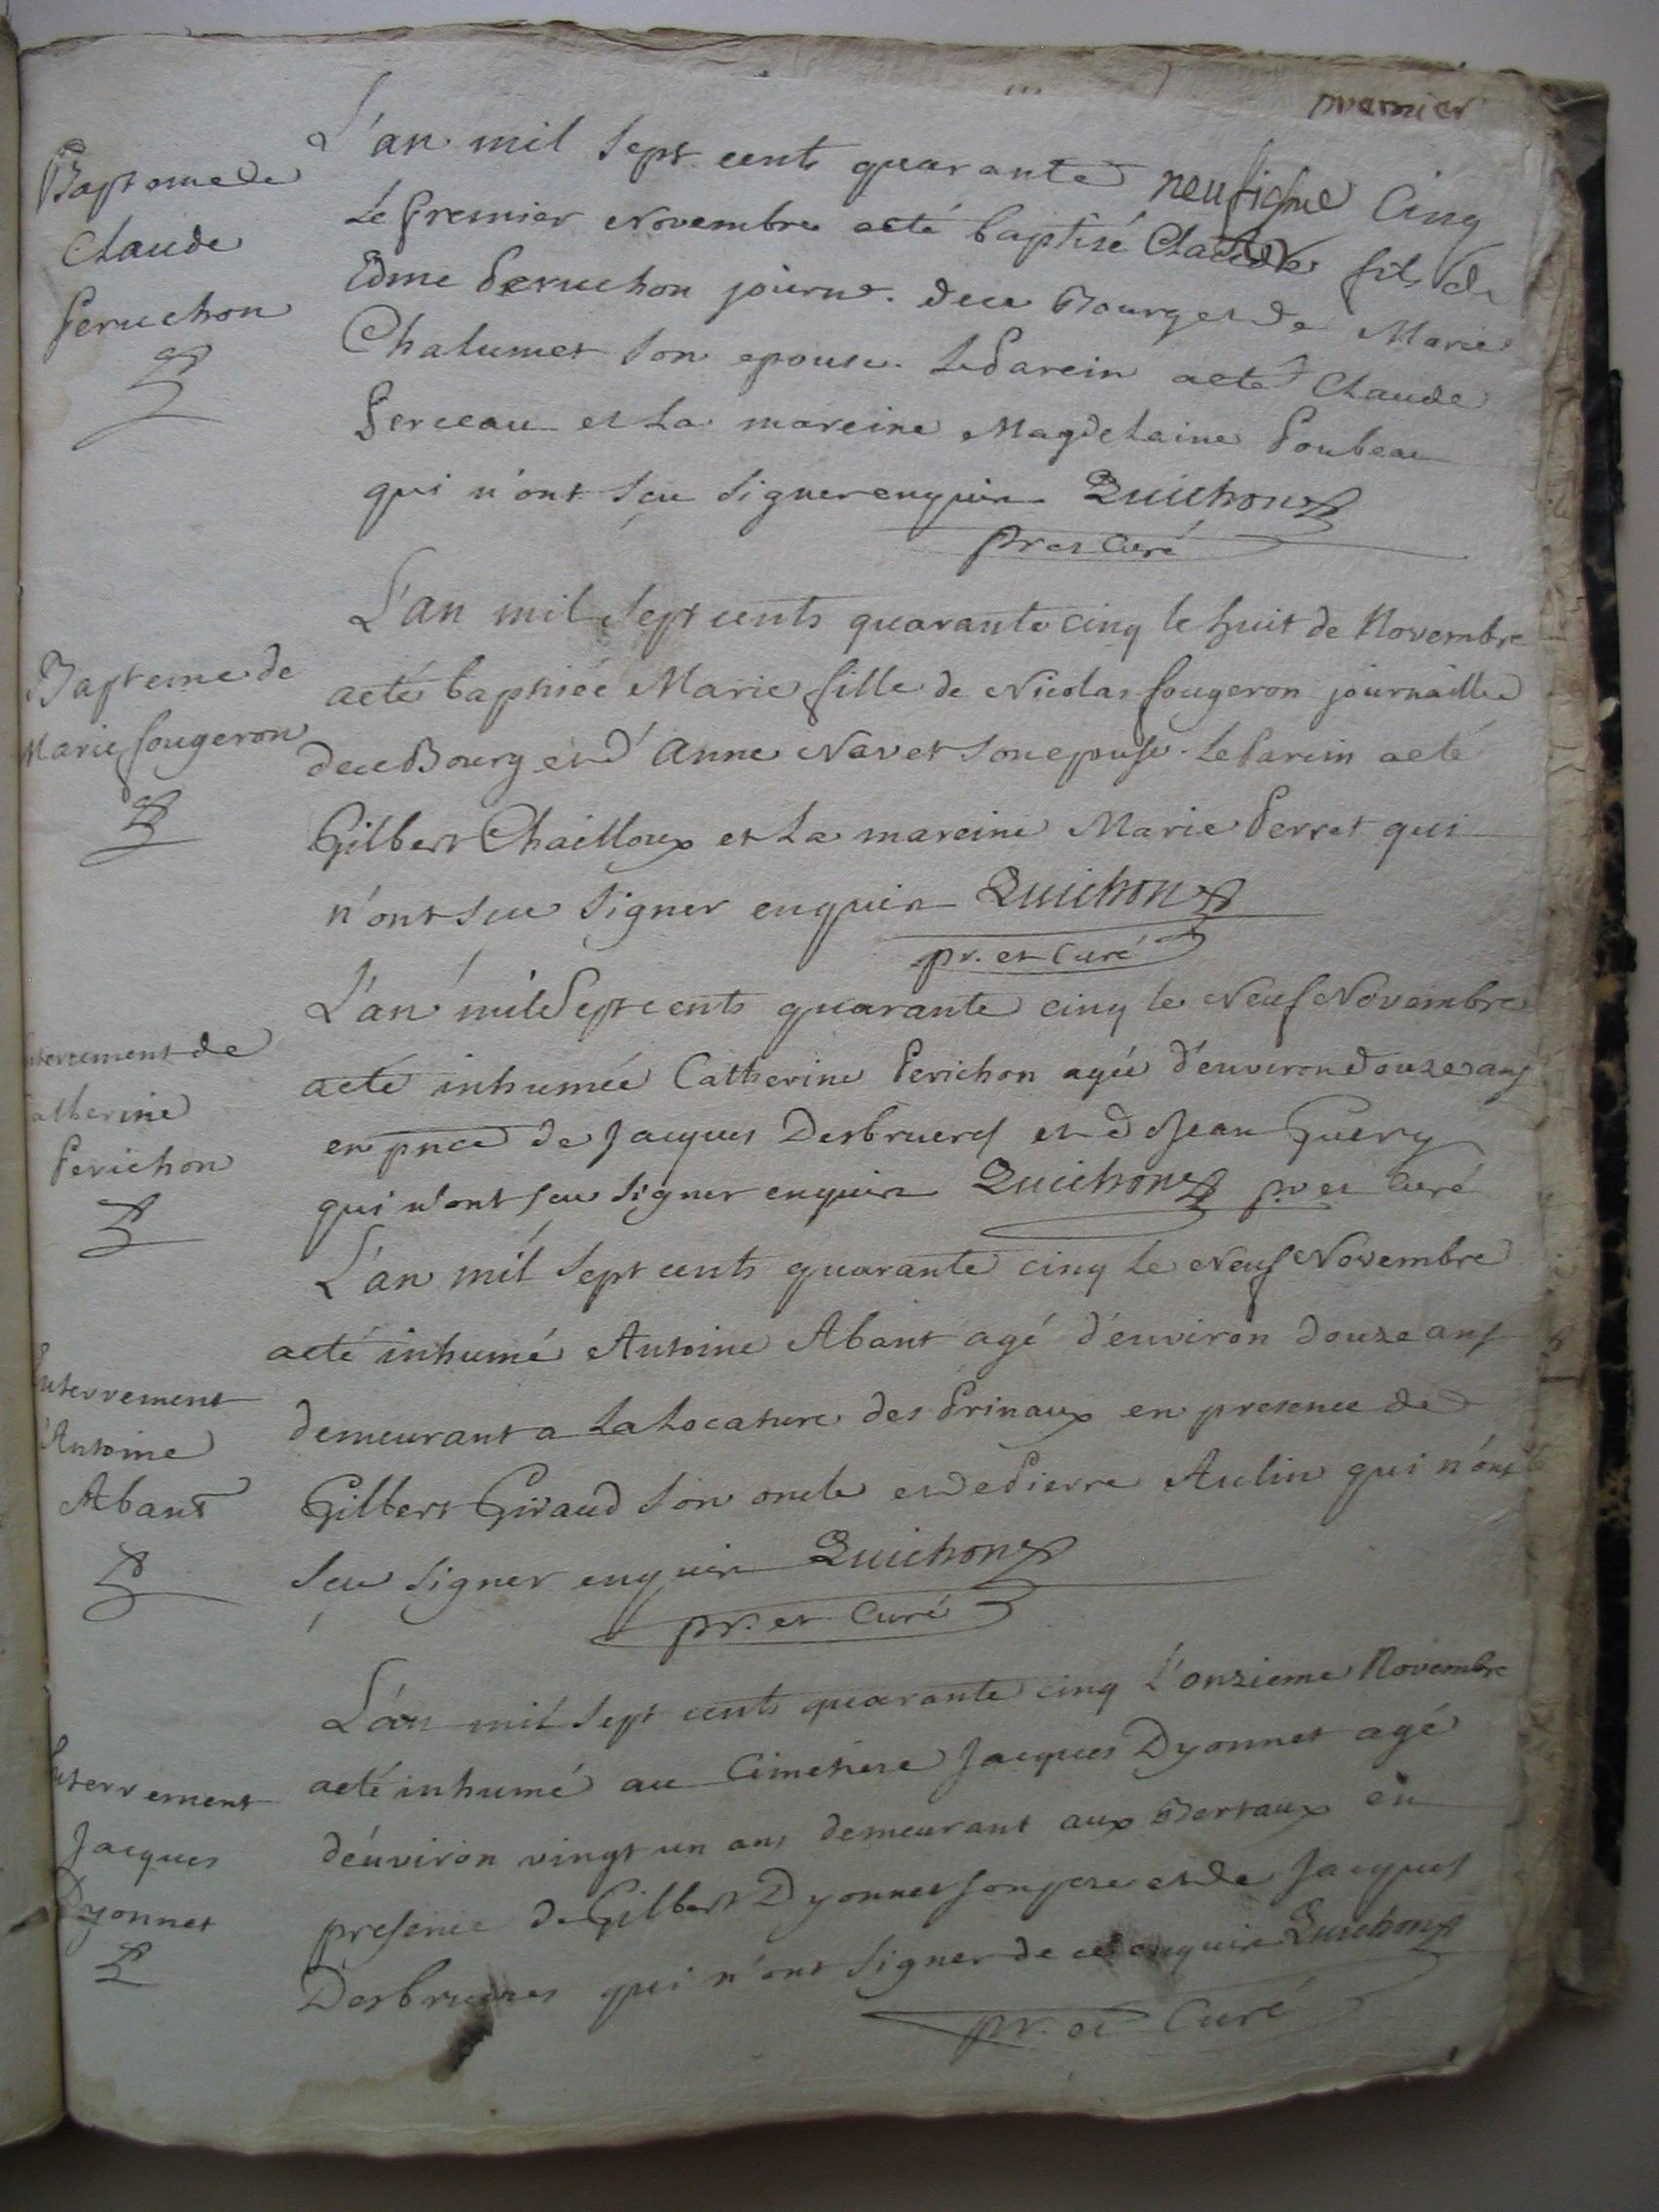 premier
Baptome de
Claude
Peruchon
L'an mil sept cents quarante cinq
le premier Novembre aeté baptisé Claude fils de
Edme Peruchon journr. de ce Bourg et de Marie
Chalumet son epouse. Le Parein aeté Claude
Perceau et la mareine Magdelaine Poubeau
qui n'ont scu signer enquis Quichon
pr et Curé
Bapteme de
Marie fougeron
L'an mil sept cents quarante cinq le huit de Novembre
aeté baptiseé Marie fille de Nicolas fougeron journailler
de ce Bourg et d'Anne Navet son epouse. Le Parein aeté
Gilbert Chailloux et la mareine Marie Perret qui
n'ont scu signer enquis Quichon
pr. et Curé
nterrement de
atherine
Perichon
L'an mil sept cents quarante cinq le Neuf Novembre
aeté inhumeé Catherine Perichon ageé d'environ douze ans
en pnce de Jacques Desbrueres et de Jean Guery
qui n'ont scu signer enquis Quichon pr et Curé
Enterrement
d'Antoine
Abant
L'an mil sept cents quarante cinq le Neuf Novembre
aeté inhumé Antoine Abant agé d'environ douze ans
demeurant a la Locature des Prinaux en presence de
Gilbert Giraud son oncle et de Pierre Aulin qui n'ont
scu signer enquis Quichon
pr. et Curé
Enterrement
Jacques
Dyonnet
L'an mil sept cents quarante cinq l'onzieme Novembre
aeté inhumé au Cimetiere Jacques Dyonnet agé
d'environ vingt un ans demeurant aux Bertaux en
presence de Gilbert Dyonnet son pere et de Jacques
Desbrueres qui n'ont signer de ce enquis Quichon
pr. et Curé